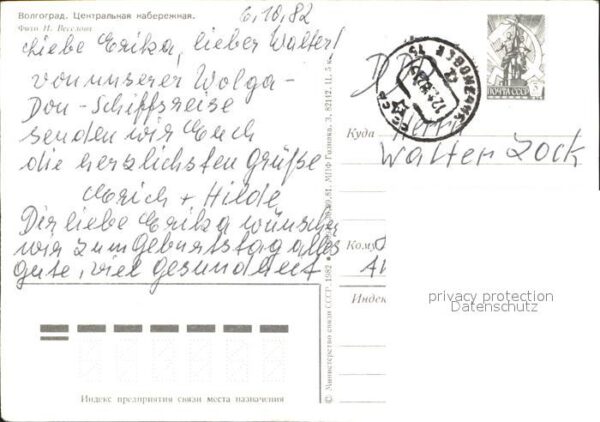 Волгоград. Центральная набережная.
Фото Н. Веселова
6.10.82
Liebe Erika, lieber Walter!
von unserer Wolga-
Don-Schiffsreise
senden wir Euch
die herzlichsten Grüße
Erich + Hilde
Dir liebe Erika wünschen
wir zum Geburtstag alles
gute, viel gesundheit
ПОЧТА СССР
DDR
Куда Herrn
Walter Zock
Кому
Индекс
privacy protection
Datenschutz
Индекс предприятия связи места назначения
© Министерство связи СССР. 1982
МПФ Гознака. З. 82112. Ц. 5 к.